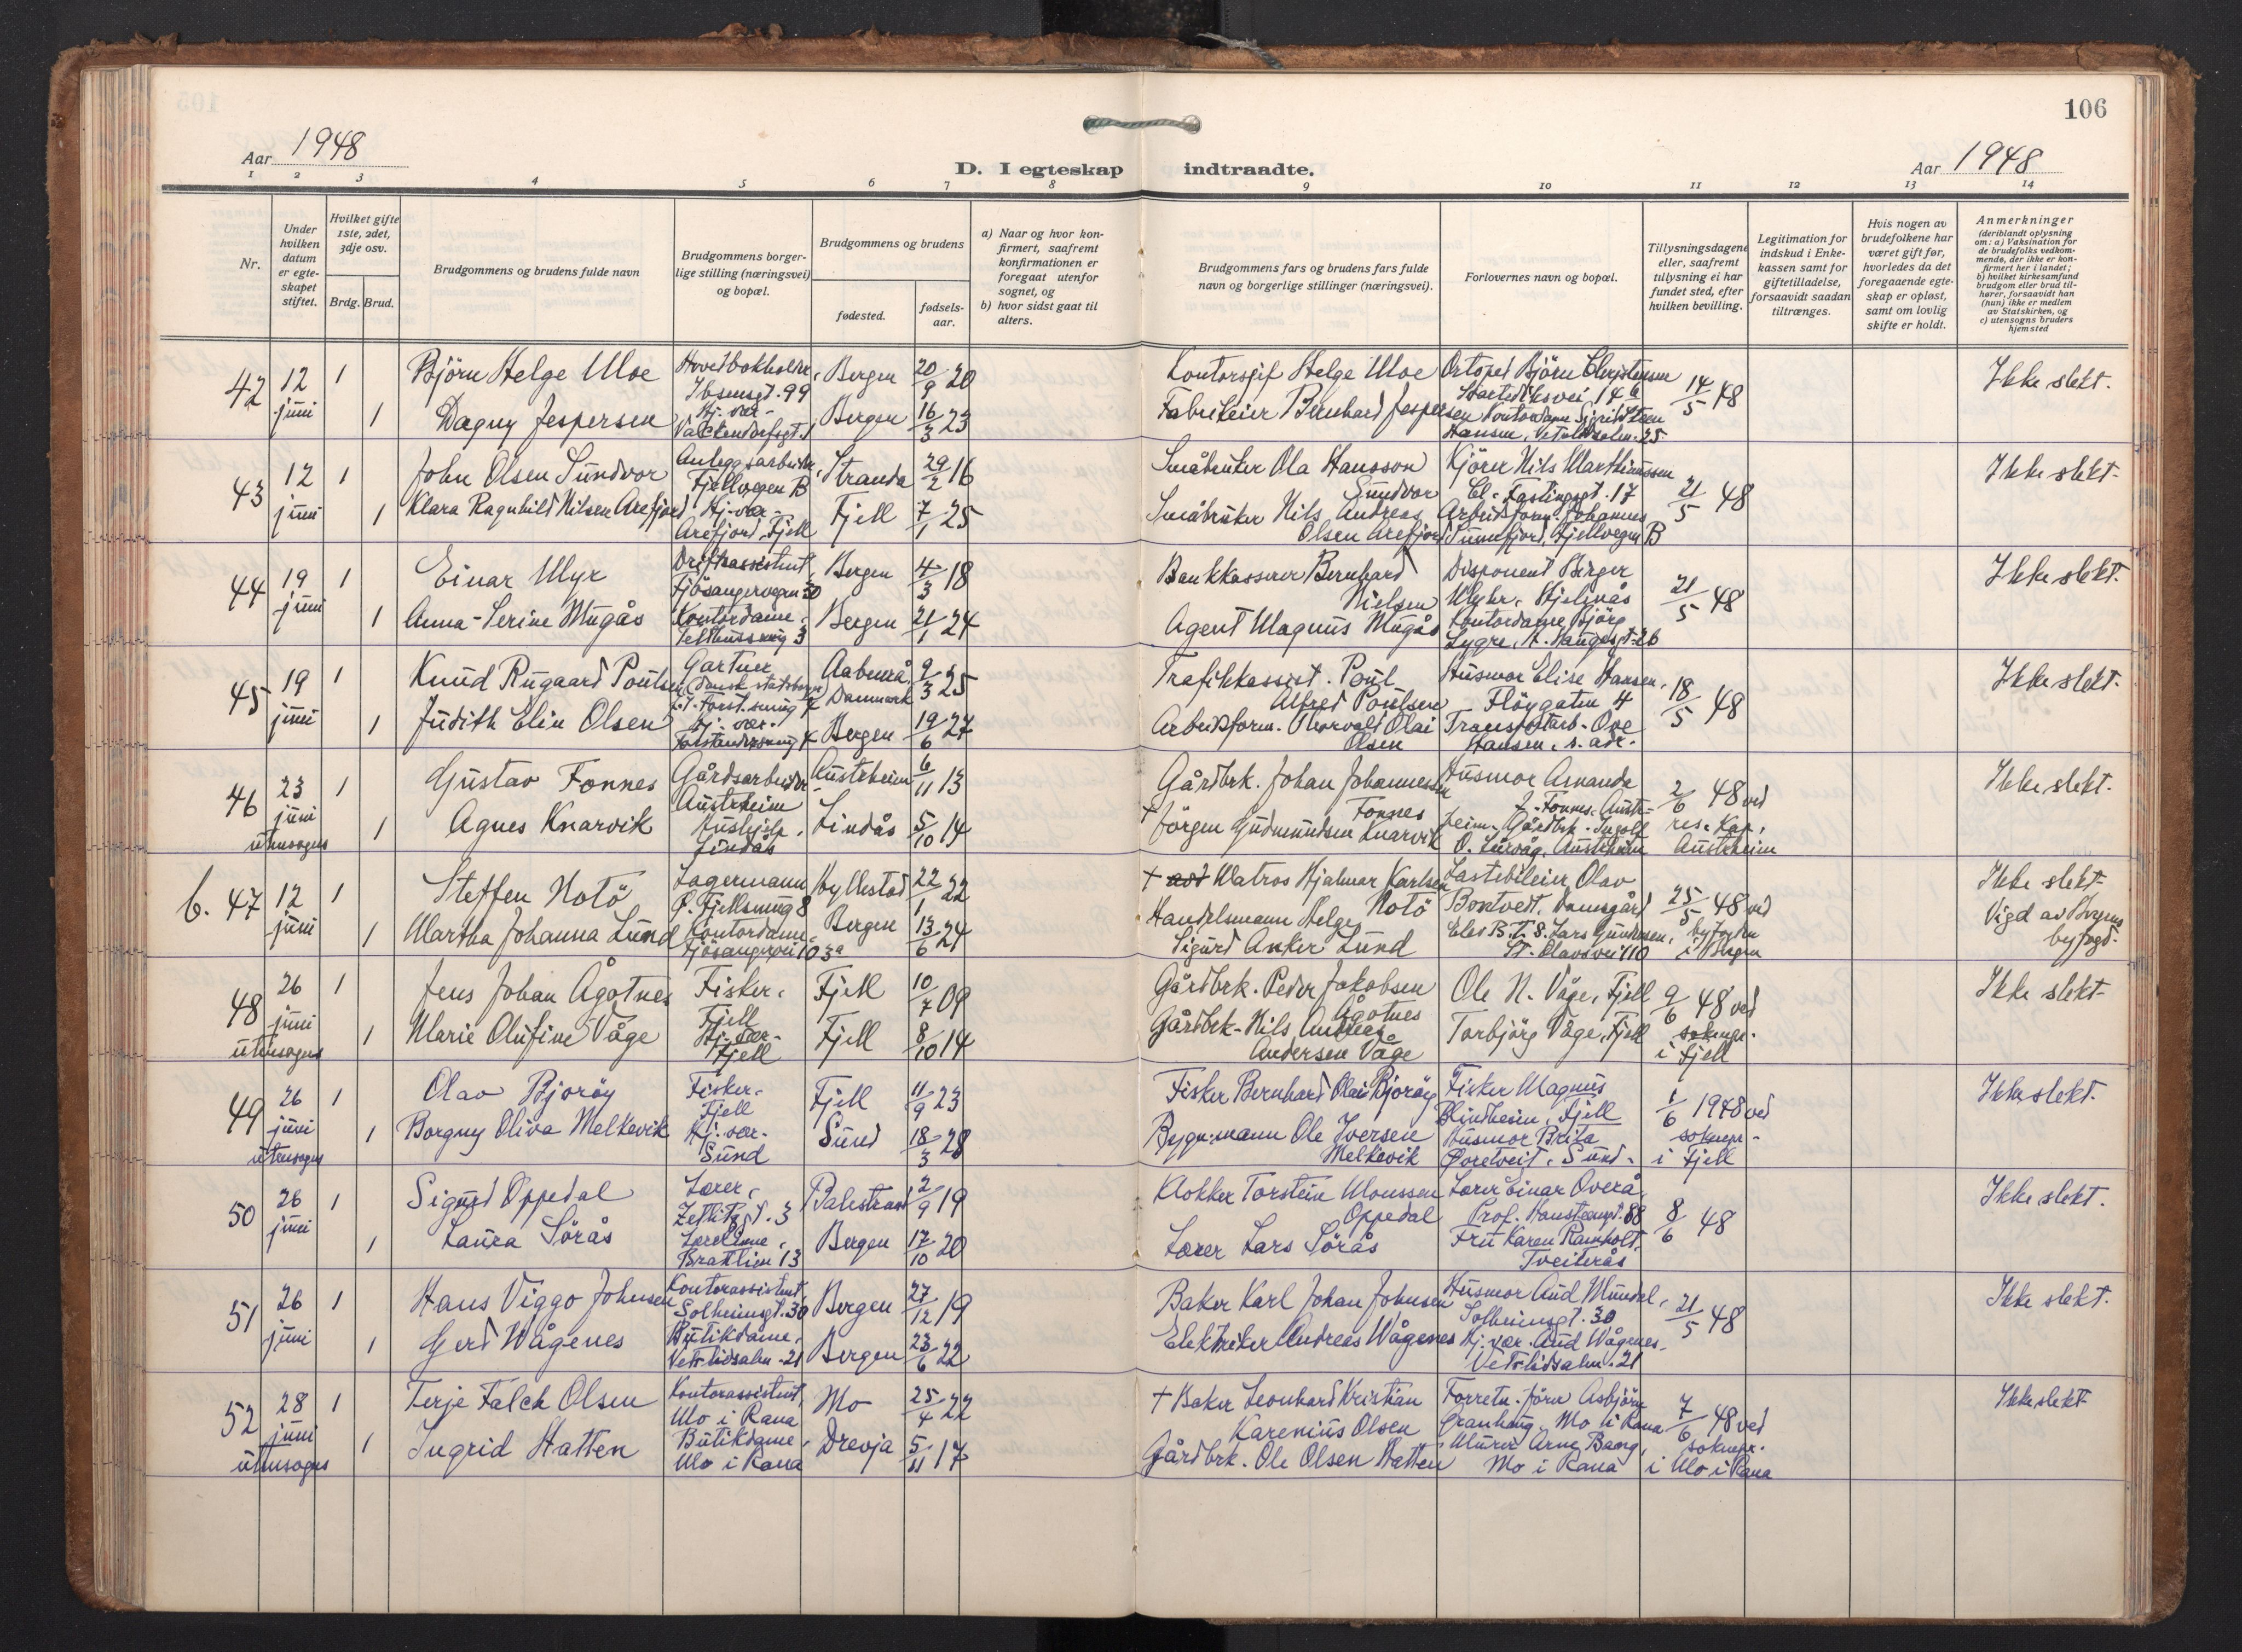 106
Aar 1948
D. I egteskap indtraadte.
Aar 1948
1 2 3 4 5 6 7 8 9 10 11 12 13 14
Nr.
Under hvilken datum er egteskapet stiftet.
Hvilket gifte 1ste, 2det, 3dje osv.
Brdg. Brud.
Brudgommens og brudens fulde navn
Brudgommens borgerlige stilling (næringsvei) og bopæl.
Brudgommens og brudens
fødested.
fødselsaar.
a) Naar og hvor konfirmert, saafremt konfirmationen er foregaat utenfor sognet, og
b) hvor sidst gaat til alters.
Brudgommens fars og brudens fars fulde navn og borgerlige stillinger (næringsvei).
Forlovernes navn og bopæl.
Tillysningsdagene eller, saafremt tillysning ei har fundet sted, efter hvilken bevilling.
Legitimation for indskud i Enkekassen samt for giftetilladelse, forsaavidt saadan tiltrænges.
Hvis nogen av brudefolkene har været gift før, hvorledes da det foregaaende egteskap er opløst, samt om lovlig skifte er holdt.
Anmerkninger
(deriblandt oplysning om: a) Vaksination for de brudefolks vedkommende, der ikke er konfirmert her i landet;
b) hvilket kirkesamfund brudgom eller brud tilhører, forsaavidt han (hun) ikke er medlem av Statskirken, og
c) utensogns bruders hjemsted
42 12 juni 1 Björn Helge Moe Hovedbokholder, Ibsensgt. 99 Bergen 20/9 20 Kontorsjef Helge Moe Ortoped Björn Christensen 14/5 48 Ikke slekt.
1 Dagny Jespersen Hj. vær. Valckendorfsgt. 1 Bergen 16/3 23 Fabrikeier Bernhard Jespersen Kontordame Sigrid Steen Hansen, Vetrlidsalm. 25
43 12 juni 1 John Olsen Sundvor Anleggsarbeider, Fjellvegen B Stranda 29/2 16 Småbruker Ola Hansson Sundvor Kjörer Nils Marthinussen Cl. Fastingsgt. 17 21/5 48 Ikke slekt.
1 Klara Ragnhild Nilsen Arefjord Hj. vær. Arefjord, Fjell Fjell 7/1 25 Småbruker Nils Andreas Olsen Arefjord Arbeidsform. Johannes Sunnfjord, Fjellvegen B
44 19 juni 1 Einar Myr Driftsassistent, Fjösangervegen 30 Bergen 4/3 18 Bankkasserer Bernhard Nielsen Disponent Birger Myhr, Hjelmås 21/5 48 Ikke slekt.
1 Anna-Serine Mugås Kontordame, Selthussmug 3 Bergen 21/1 24 Agent Magnus Mugås Kontordame Björg Lygre, H. Haugesgt. 26
45 19 juni 1 Knud Rugaard Poulsen Gartner (dansk statsborger) Aabenrå, Danmark 9/3 25 Trafikkassist. Poul Alfred Poulsen Husmor Elise Hansen, Flöygaten 4 18/5 48 Ikke slekt.
1 Judith Elin Olsen Hj. vær. Forstandersmug 4 Bergen 19/6 27 Arbeidsform. Thorvald Olai Olsen Transportarb. Ove Hansen, s. adr.
46 23 juni utensogns 1 Gustav Fonnes Gårdsarbeider, Austrheim Austrheim 6/11 13 Gårdbrk. Johan Johannessen Fonnes Husmor Amanda J. Fonnes, Austrheim, 2/6 48 ved res. Kap. Austrheim Ikke slekt.
1 Agnes Knarvik Hushjelp, Lindås Lindås 5/10 14 + Jörgen Gudmundsen Knarvik Gårdbrk. Ingolf O. Lurås, Austrheim
b. 47 12 juni 1 Steffen Notö Lagermann Ö. Fjellsmug 8 Hyllestad 22/1 22 + Matros Hjalmar Karlsen Notö Lastebileier Olav Bontvedt, Damsgård 25/5 48 ved byfogden i Bergen Ikke slekt. Vigd av Bergens byfogd.
1 Martha Johanna Lund Kontordame, Fjösangervei 103a Bergen 13/6 24 Handelsmann Helge Sigurd Anker Lund Elev B.T.S. Lars Gundersen, St. Olavsvei 110
48 26 juni utensogns 1 Jens Johan Ågotnes Fisker, Fjell Fjell 10/7 09 Gårdbrk. Peder Jakobsen Ågotnes Ole N. Våge, Fjell 9/6 48 ved soknepr. i Fjell Ikke slekt.
1 Marie Olufine Våge Hj. vær. Fjell Fjell 8/10 14 Gårdbrk. Nils Andreas Andersen Våge Torbjörg Våge, Fjell
49 26 juni utensogns 1 Olav Bjoröy Fisker, Fjell Fjell 11/9 23 Fisker Bernhard Olai Bjoröy Fisker Magnus Blindheim, Fjell 1/6 1948 ved soknepr. i Fjell Ikke slekt.
1 Borgny Oliva Melkevik Hj. vær. Sund Sund 18/3 28 Bygn.mann Ole Iversen Melkevik Husmor Brita Övretveit, Sund.
50 26 juni 1 Sigurd Oppedal Lærer, Zetlitzgt. 3 Balestrand 2/9 19 Klokker Torstein Monssen Oppedal Lærer Einar Överå, Prof. Hansteensgt. 88 8/6 48 Ikke slekt.
1 Laura Sörås Lærerinne, Brattlien 13 Bergen 17/10 20 Lærer Lars Sörås Fru Karen Ramholt, Tveiterås
51 26 juni 1 Hans Viggo Johnsen Kontorassistent, Solheimsgt. 30 Bergen 27/12 19 Baker Karl Johan Johnsen Husmor Aud Mundal, Solheimsgt. 30 21/5 48 Ikke slekt.
1 Gerd Wågenes Butikdame, Vetrlidsalm. 21 Bergen 23/6 22 Elektriker Andreas Wågenes Hj. vær. Aud Wågenes, Vetrlidsalm. 21
52 28 juni utensogns 1 Terje Falch Olsen Kontorassistent, Mo i Rana Mo 25/4 22 + Baker Leonhard Kristian Karenius Olsen Forretn.förer Asbjörn Granhaug, Mo i Rana 7/6 48 ved soknepr. i Mo i Rana Ikke slekt.
1 Ingrid Hatten Butikdame, Mo i Rana Drevja 5/11 17 Gårdbrk. Ole Olsen Hatten Murer Arne Bang, Mo i Rana